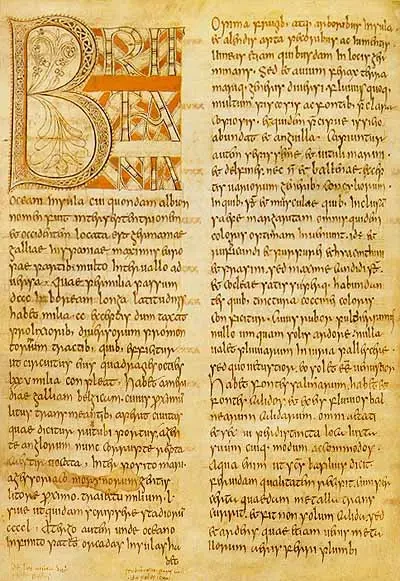 BRIT
TA
NIA
Oceani insula cui quondam albion
nomen fuit inter septentrionem
et occidentem locata est germaniae
galliae hispaniae maximis euro
pae partibus multo interuallo ad
uersa. Quae per milia passuum
dccc in boream longa latitudinis
habet milia cc exceptis dum taxat
prolixioribus diuersorum promon
toriorum tractibus quib; efficitur
ut circuitus eius quadragies octies
lxxv milia conpleat. Habet a meri
die galliam belgicam cuius proxim
litus transmeantib; aperit ciuitas
quae dicitur rutubi portus a gen
te anglorum nunc corrupte repta
caestir uocata. Interposito mari
a gessoriaco morynorum gentis
litore proximo traiectu milium l.
siue ut quidam scripsere stadiorum
ccccl. A tergo autem unde oceano
infinito patet orcadas insulas ha
bet
Opima frugib; atq; arboribus insula
et alendis apta pecoribus ac iumentis
uineas etiam quibusdam in locis ger
minans. Sed et auium ferax terra
mariq; generis diuersi fluuiis quoq;
multum piscosis ac fontib; praeclara
copiosis et quidem praecipue issicio
abundat et anguilla. Capiuntur
autem saepissime et uituli marini
et delphines nec non et balenae exceptis
uariorum generib; concyliorum
in quib; sunt et musculae quib; inclusam
saepe margaritam omnis quidem
coloris optimam inueniunt, id est et
rubicundi et purpurei et hyacinthini
et prasini, sed maxime candidi. Sunt
et cocleae satis superq; habundan
tes quib; tinctura coccinei coloris
conficitur. Cuius rubor pulcherrimus
nullo umquam solis ardore, nulla
ualet pluuiarum iniuria pallescere
sed quo uetustior eo solet esse uenustior
Habet fontes salinarum, habet et
fontes calidos et ex eis fluuios bal
nearum calidarum, omni aetati
et sexu per distincta loca iuxta
suum cuiq; modum accommodos.
Aqua enim ut scs basilius dicit
feruidam qualitatem recipit, cum per
certa quaedam metalla trans
currit, et fit non solum calida sed
et ardens. quae etiam uenis metal
lorum aeris ferri plumbi